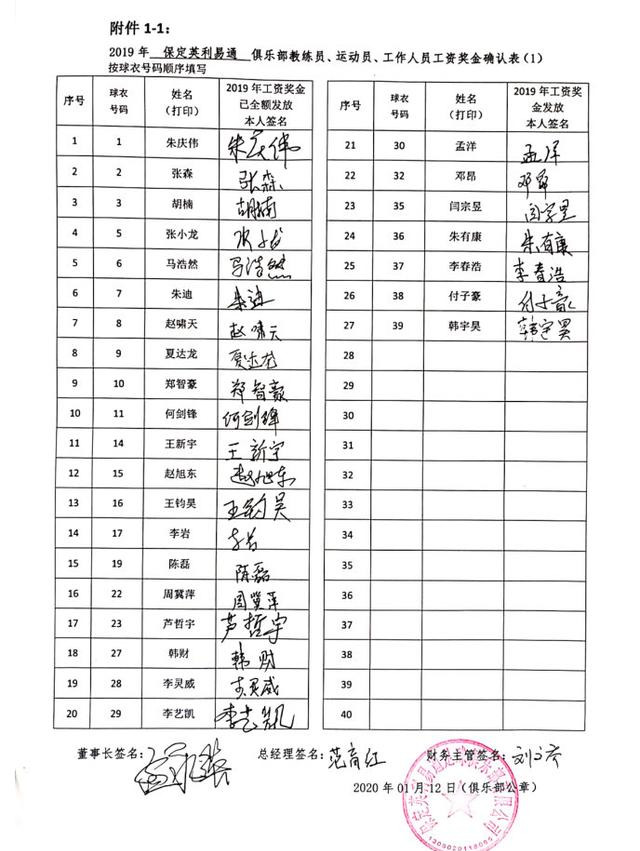 附件 1-1:
2019 年 保定英利易通 俱乐部教练员、运动员、工作人员工资奖金确认表(1)
按球衣号码顺序填写
序号 球衣号码 姓名(打印) 2019 年工资奖金已全额发放本人签名
1 1 朱庆伟 朱庆伟
2 2 张森 张森
3 3 胡楠 胡楠
4 5 张小龙 张小龙
5 6 马浩然 马浩然
6 7 朱迪 朱迪
7 8 赵啸天 赵啸天
8 9 夏达龙 夏达龙
9 10 郑智豪 郑智豪
10 11 何剑锋 何剑锋
11 14 王新宇 王新宇
12 15 赵旭东 赵旭东
13 16 王钧昊 王钧昊
14 17 李岩 李岩
15 19 陈磊 陈磊
16 22 周冀萍 周冀萍
17 23 芦哲宇 芦哲宇
18 27 韩财 韩财
19 28 李灵威 李灵威
20 29 李艺凯 李艺凯
序号 球衣号码 姓名(打印) 2019 年工资奖金发放本人签名
21 30 孟洋 孟洋
22 32 邓昂 邓昂
23 35 闫宗昱 闫宗昱
24 36 朱有康 朱有康
25 37 李春浩 李春浩
26 38 付子豪 付子豪
27 39 韩宇昊 韩宇昊
28
29
30
31
32
33
34
35
36
37
38
39
40
董事长签名: 总经理签名:范育红 财务主管签名:
2020 年 01 月 12 日(俱乐部公章)
保定英利易通足球俱乐部有限公司